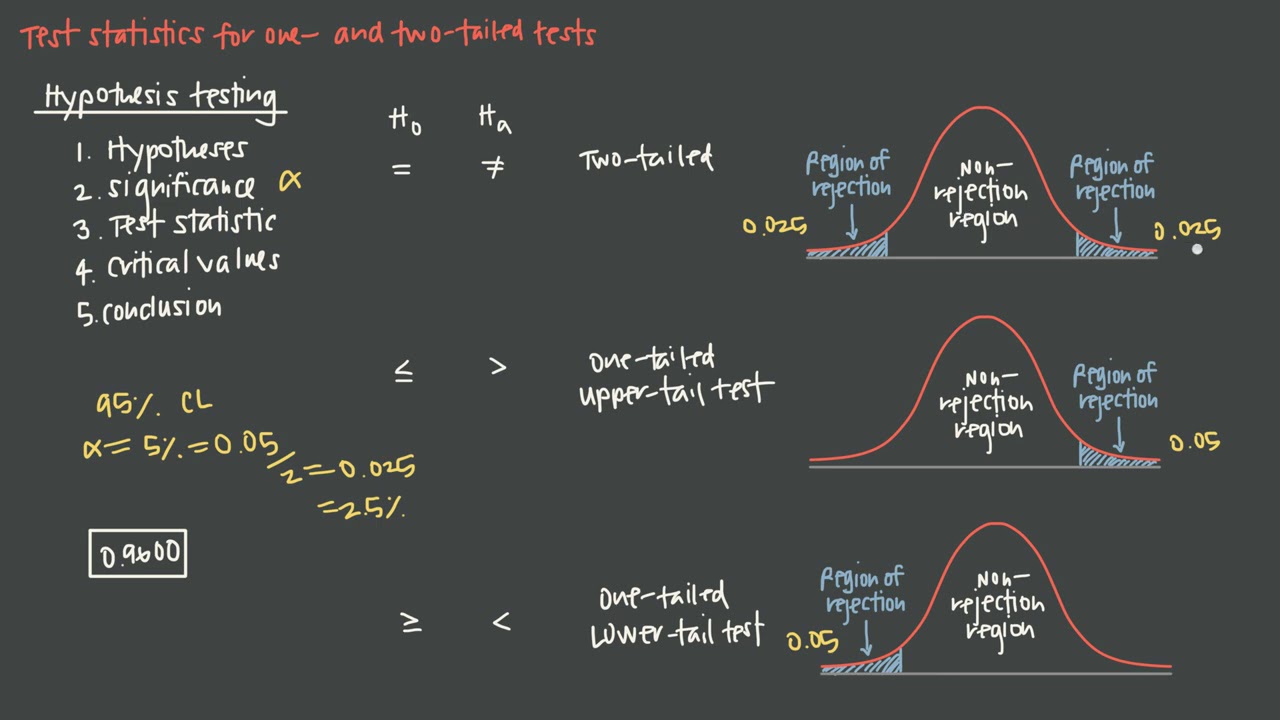 Test statistics for one- and two-tailed tests
Hypothesis testing
1. Hypotheses
2. significance α
3. Test statistic
4. critical values
5. conclusion
H₀ Hₐ
= ≠ Two-tailed
Region of
rejection
Non-
rejection
region
Region of
rejection
0.025
0.025
≤ > one-tailed
upper-tail test
Non-
rejection
region
Region of
rejection
0.05
95% CL
α = 5% = 0.05/2 = 0.025
= 2.5%
0.9600
≥ < one-tailed
Lower-tail test
Region of
rejection
0.05
Non-
rejection
region